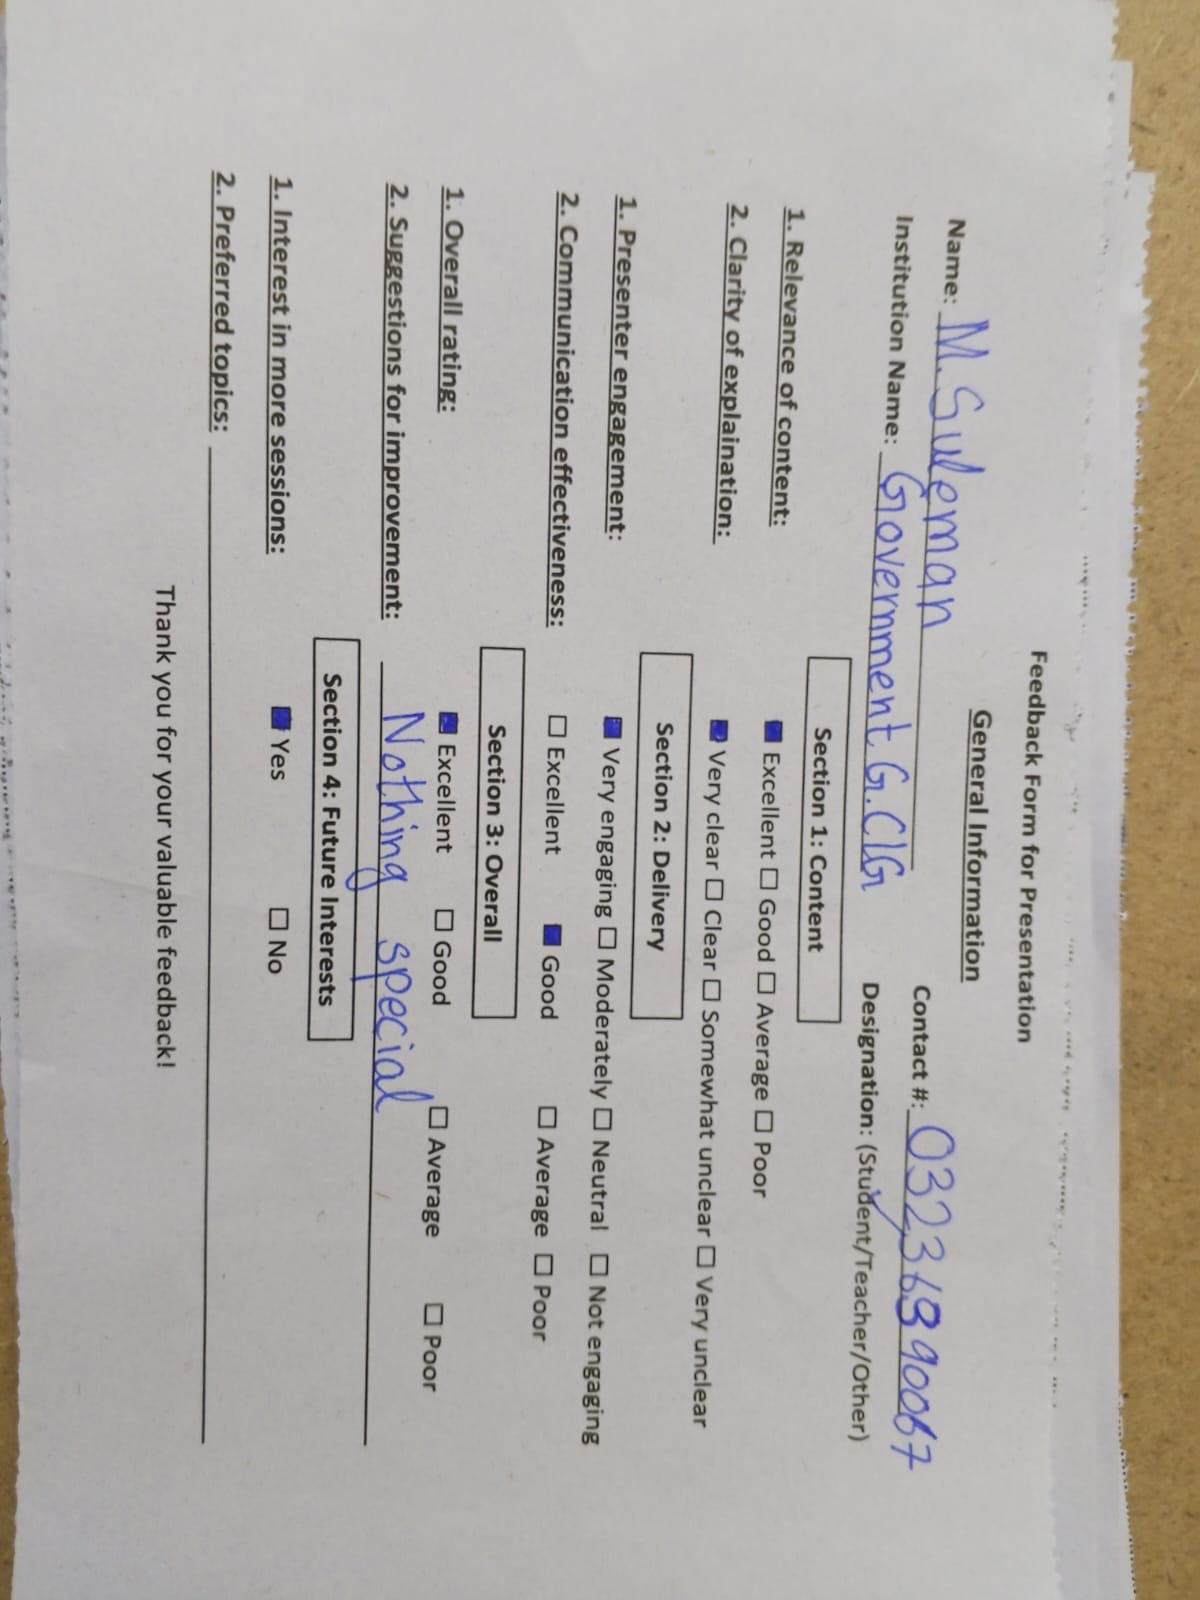 Feedback Form for Presentation
General Information
Name: M. Suleman
Contact #:
Institution Name: Government G.CIG
Designation: (Student/Teacher/Other)
Section 1: Content
1. Relevance of content: ■ Excellent ☐ Good ☐ Average ☐ Poor
2. Clarity of explaination: ■ Very clear ☐ Clear ☐ Somewhat unclear ☐ Very unclear
Section 2: Delivery
1. Presenter engagement: ■ Very engaging ☐ Moderately ☐ Neutral ☐ Not engaging
2. Communication effectiveness: ☐ Excellent ■ Good ☐ Average ☐ Poor
Section 3: Overall
1. Overall rating: ■ Excellent ☐ Good ☐ Average ☐ Poor
2. Suggestions for improvement: Nothing special
Section 4: Future Interests
1. Interest in more sessions: ■ Yes ☐ No
2. Preferred topics:
Thank you for your valuable feedback!